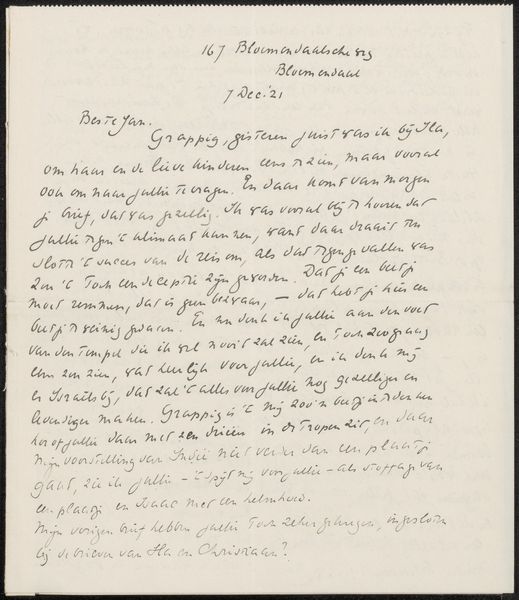 167 Bloemendaalscheweg
Bloemendaal
7 Dec. '21
Beste Jan.
Grappig, gisteren juist was ik bij Ila,
om haar en de lieve kinderen eens te zien, maar vooral
ook om naar jullie te vragen. En daar komt van morgen
je brief, dat was gezellig. Ik was vooral blij te hooren dat
jullie tegen 't klimaat kunnen, want daar draait ten
slotte 't succes van de reis om, als dat tegengevallen was
zou 't toch een deceptie zijn geworden. Dat je een beetje
moet remmen, dat is geen bezwaar, — dat heb je hier een
beetje te weinig gedaan. En nu denk ik jullie aan den voet
van den tempel die ik wel nooit zal zien, en toch zoo graag
eens zou zien, wat heerlijk voor jullie, en ik denk mij
er Israels bij, dat zal 't alles voor jullie nog gezelliger en
levendiger maken. Grappig is 't mij zoo'n beetje in te denken
hoe of jullie daar met zen drieën in de tropen zit, en daar
mijn voorstelling van Indië niet verder dan een plaatje
gaat, zie ik jullie – 't spijt mij voor jullie – als stoffage van
een plaatje en Isaac met een helmhoed.
Mijn vorigen brief hebben jullie toch zeker gekregen, ingesloten
bij de brieven van Ila en Christiaan?